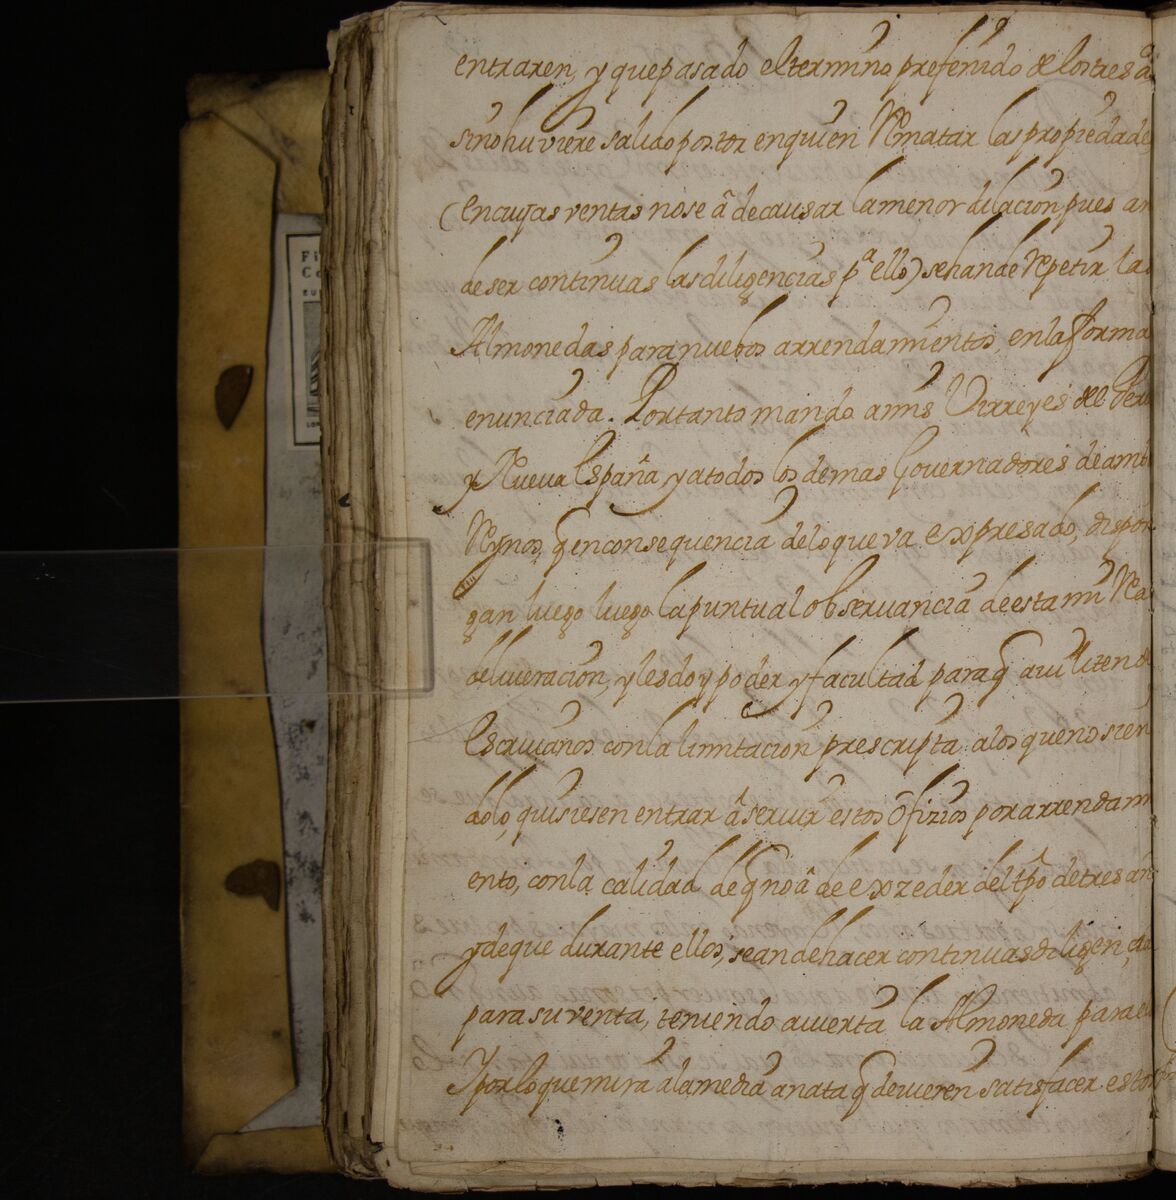 entraren, y que pasado el termino prefenido de los tres a
sino huviere salido postor en quien Rematar las propiedade
(en cuyas ventas no se â de causar la menor dilacion pues an
de ser continuas las diligencias pª ello) se han de Repetir las
Almonedas para nuebos arrendamientos, en la forma
enunciada. Por tanto mando a mis Virreyes del Peru
y Nueva España y a todos los demas Governadores de amb
Reynos, q en consequencia de lo que va expresado, dispon
gan luego luego la puntual observancia de esta mi Rl
deliveracion, y les doy poder y facultad para q aviliten de
Escrivanos con la limitacion prescripta a los que no sien
dolo, quisiesen entrar â servir estos ôfizios por arrendam
ento, con la calidad de q no â de exzeder del tpo de tres an
y de que durante ellos, se an de hacer continuas diligencia
para su venta, teniendo avierta la Almoneda para el
Y por lo que mira â la media anata q devieren satisfacer esto
Fi
Co